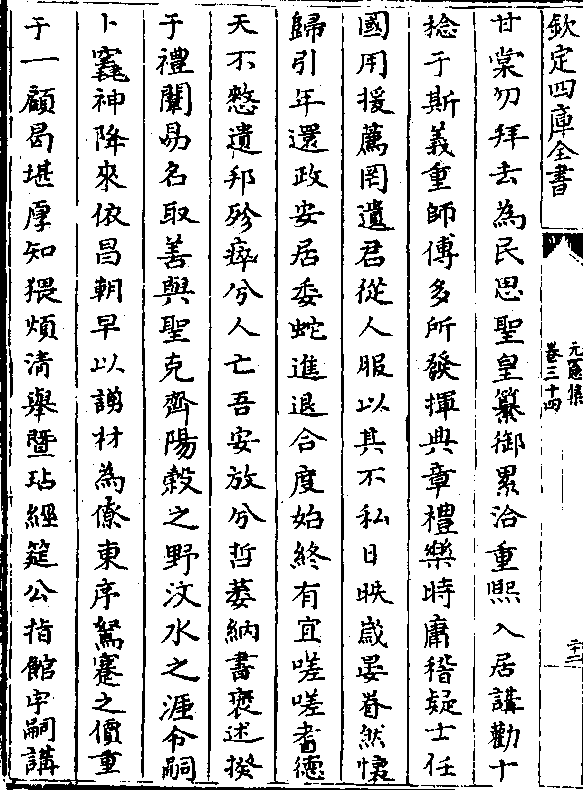 欽定四庫全書
元憲集
卷三十四
十二
甘棠勿拜去為民思聖皇纂御累洽重熙入居講勸十
稔于斯義重師傅多所發揮典章禮樂時庸稽疑士任
國用援薦罔遺君從人服以其不私日昳歲晏眷然懐
歸引年還政安居委蛇進退合度始終有宜嗟嗟耆德
天不憗遺邦殄瘁兮人亡吾安放兮哲萎納書褒述揆
于禮闈易名取善與聖克齊陽榖之野汶水之涯令嗣
卜竁神降來依昌朝早以謭材為僚東序駑蹇之價重
于一顧曷堪厚知猥煩清舉暨玷經筵公指館宇嗣講